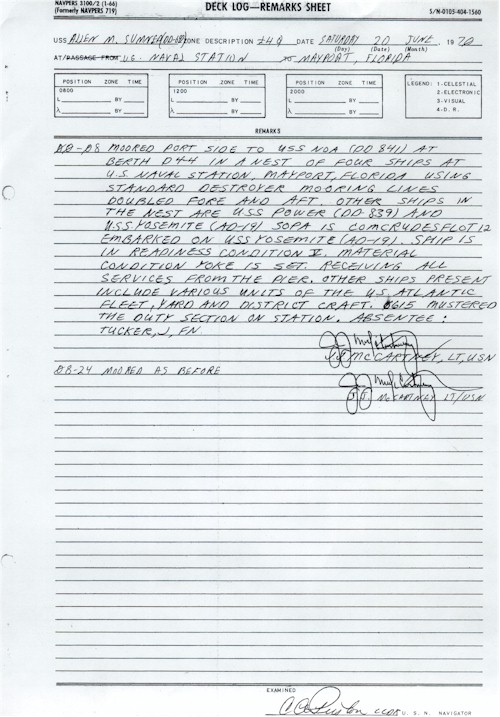 NAVPERS 3100/2 (1-66) DECK LOG—REMARKS SHEET S/N-0105-404-1560
(Formerly NAVPERS 719)
USS ALLEN M. SUMNER ZONE DESCRIPTION +4Q DATE SATURDAY 20 JUNE 1970
(Day) (Date) (Month)
AT/PASSAGE FROM U.S. NAVAL STATION TO MAYPORT, FLORIDA
POSITION ZONE TIME POSITION ZONE TIME POSITION ZONE TIME LEGEND: 1-CELESTIAL
0800 1200 2000 2-ELECTRONIC
L BY L BY L BY 3-VISUAL
λ BY λ BY λ BY 4-D. R.
REMARKS
00-08 MOORED PORT SIDE TO USS NOA (DD 841) AT
BERTH D44 IN A NEST OF FOUR SHIPS AT
U.S. NAVAL STATION, MAYPORT, FLORIDA USING
STANDARD DESTROYER MOORING LINES
DOUBLED FORE AND AFT. OTHER SHIPS IN
THE NEST ARE USS POWER (DD-839) AND
USS YOSEMITE (AD-19) SOPA IS COMCRUDESFLOT 12
EMBARKED ON USS YOSEMITE (AD-19). SHIP IS
IN READINESS CONDITION V. MATERIAL
CONDITION YOKE IS SET. RECEIVING ALL
SERVICES FROM THE PIER. OTHER SHIPS PRESENT
INCLUDE VARIOUS UNITS OF THE U.S. ATLANTIC
FLEET, YARD AND DISTRICT CRAFT. 0615 MUSTERED
THE DUTY SECTION ON STATION. ABSENTEE:
TUCKER, J, FN
J.J. McCARTNEY, LT, USN
08-24 MOORED AS BEFORE
J.J. McCARTNEY LT/USN
EXAMINED
LCDR U. S. N. NAVIGATOR